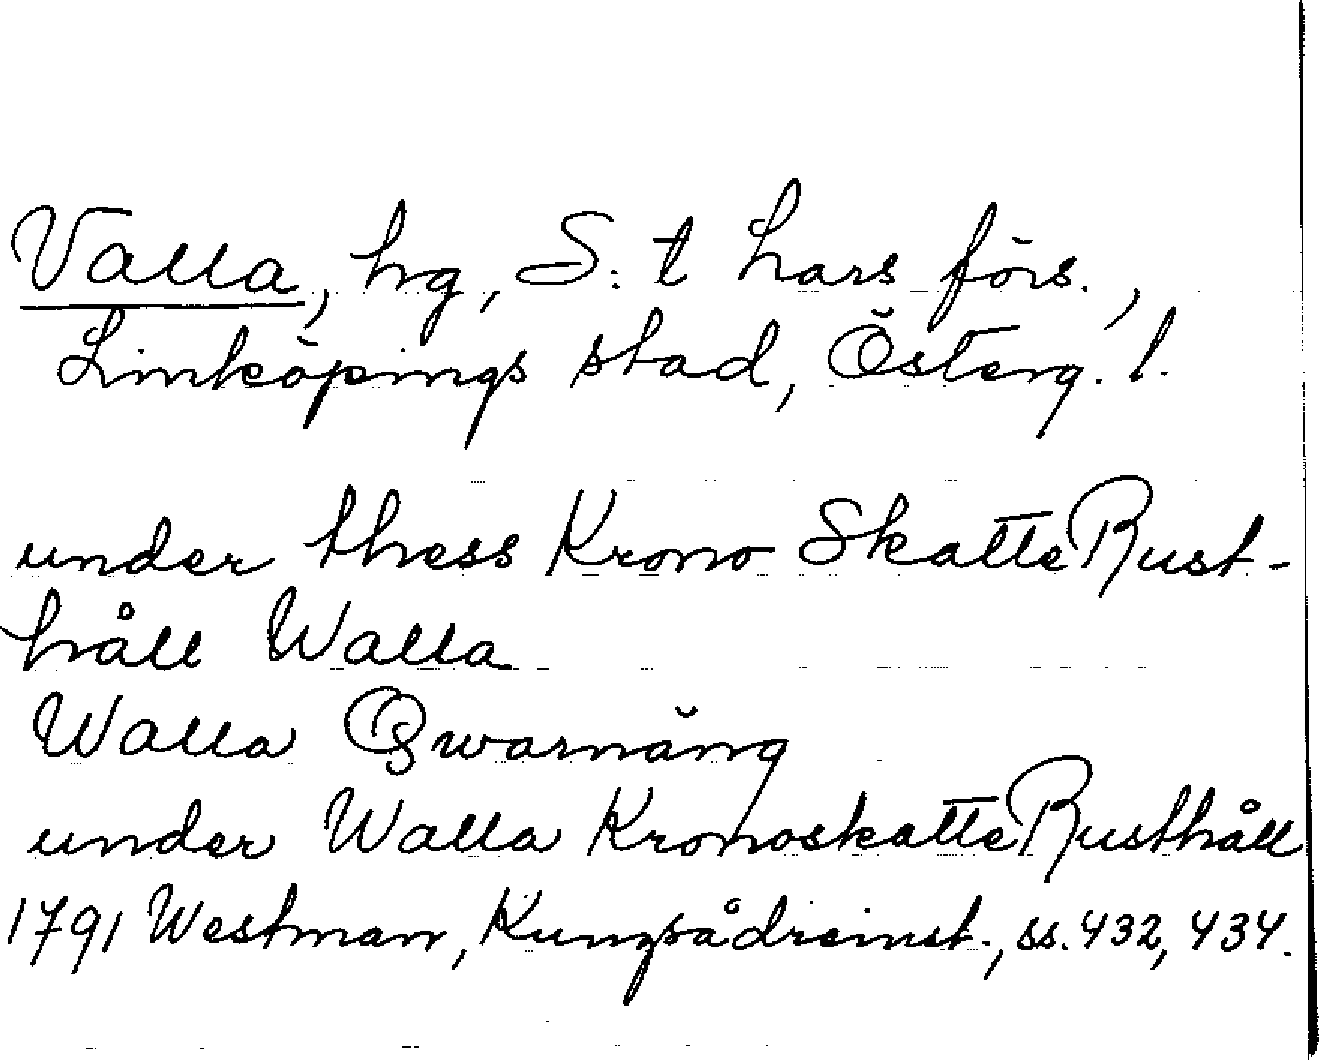 Valla, hg, S:t Lars förs.,
Linköpings stad, Österg. l.
under thess Krono SkatteRust-
håll Walla
Walla Qwarnäng
under Walla KronoskatteRusthåll
1791 Westman, Kungsådreinst., ss. 432, 434.